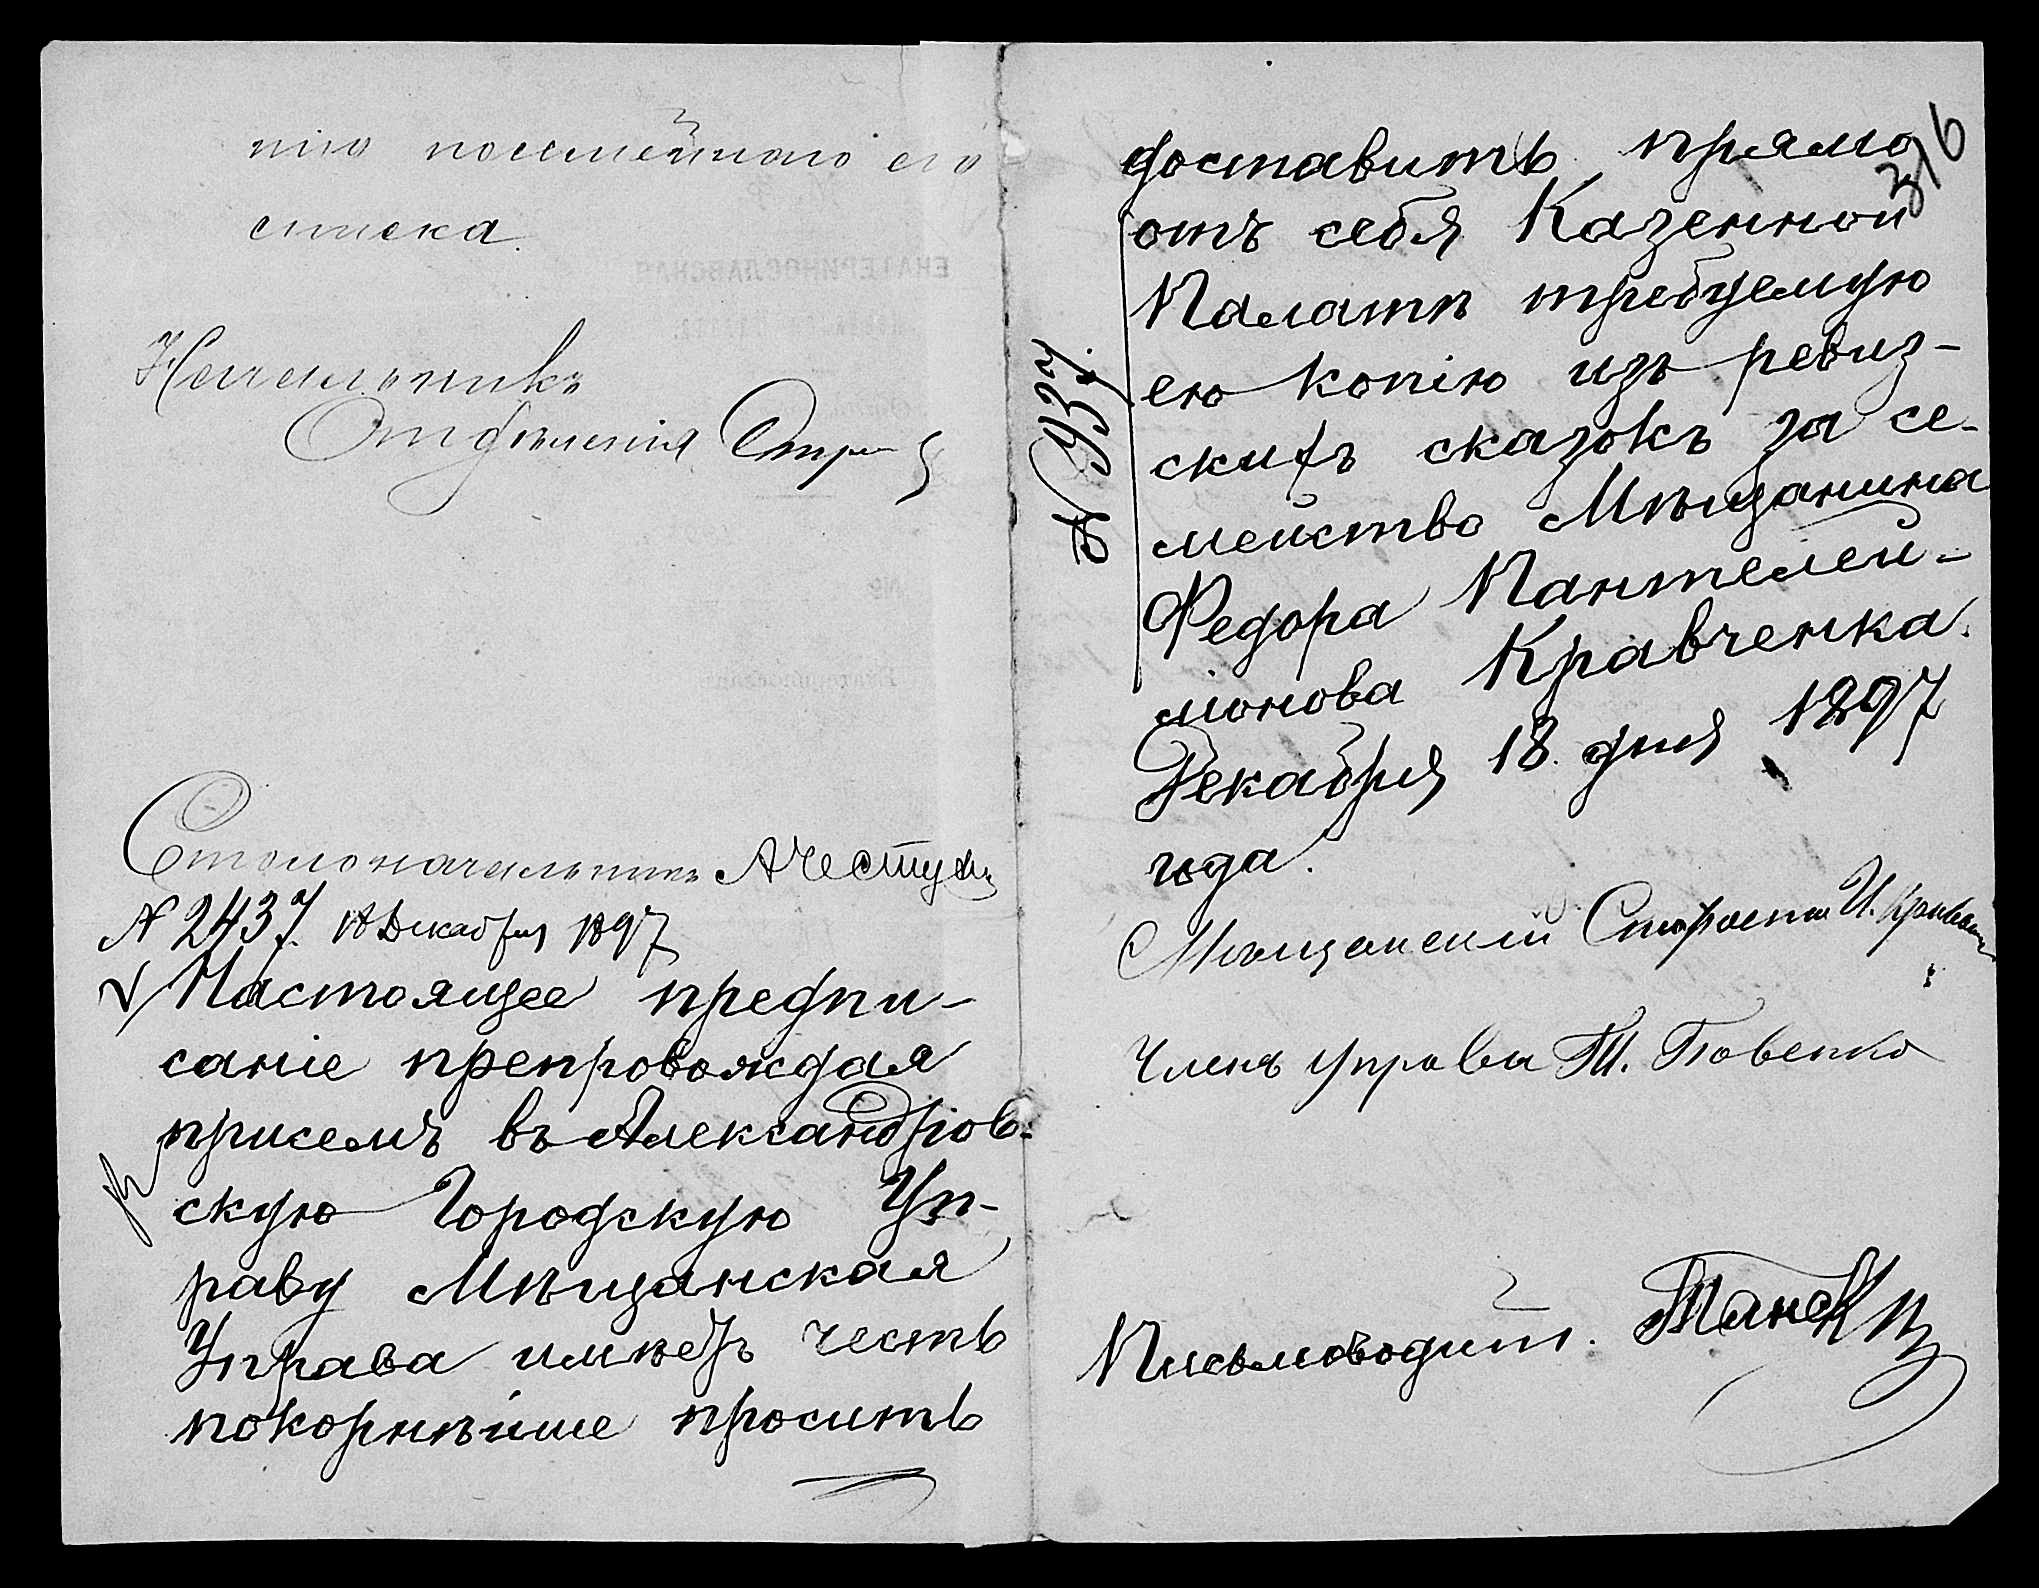 пію посемейнаго его
списка.
Начальникъ
Отдѣленія
Столоначальникъ
№ 2437. 18 Декабря 1897
Настоящее предпи-
саніе препровождая
присемъ въ Александров-
скую Городскую Уп-
раву Мѣщанская
Управа имѣетъ честь
покорнѣйше просить
316
доставить прямо
отъ себя Казенной
Палатѣ требуемую
ею копію изъ ревиз-
скихъ сказокъ за се-
мейство Мѣщанина
Федора Пантелей-
монова Кравченка.
Декабря 18 дня 1897
года.
№ 937.
Мѣщанскій Староста И.
Членъ Управы П. Бовенко
Письмоводит.